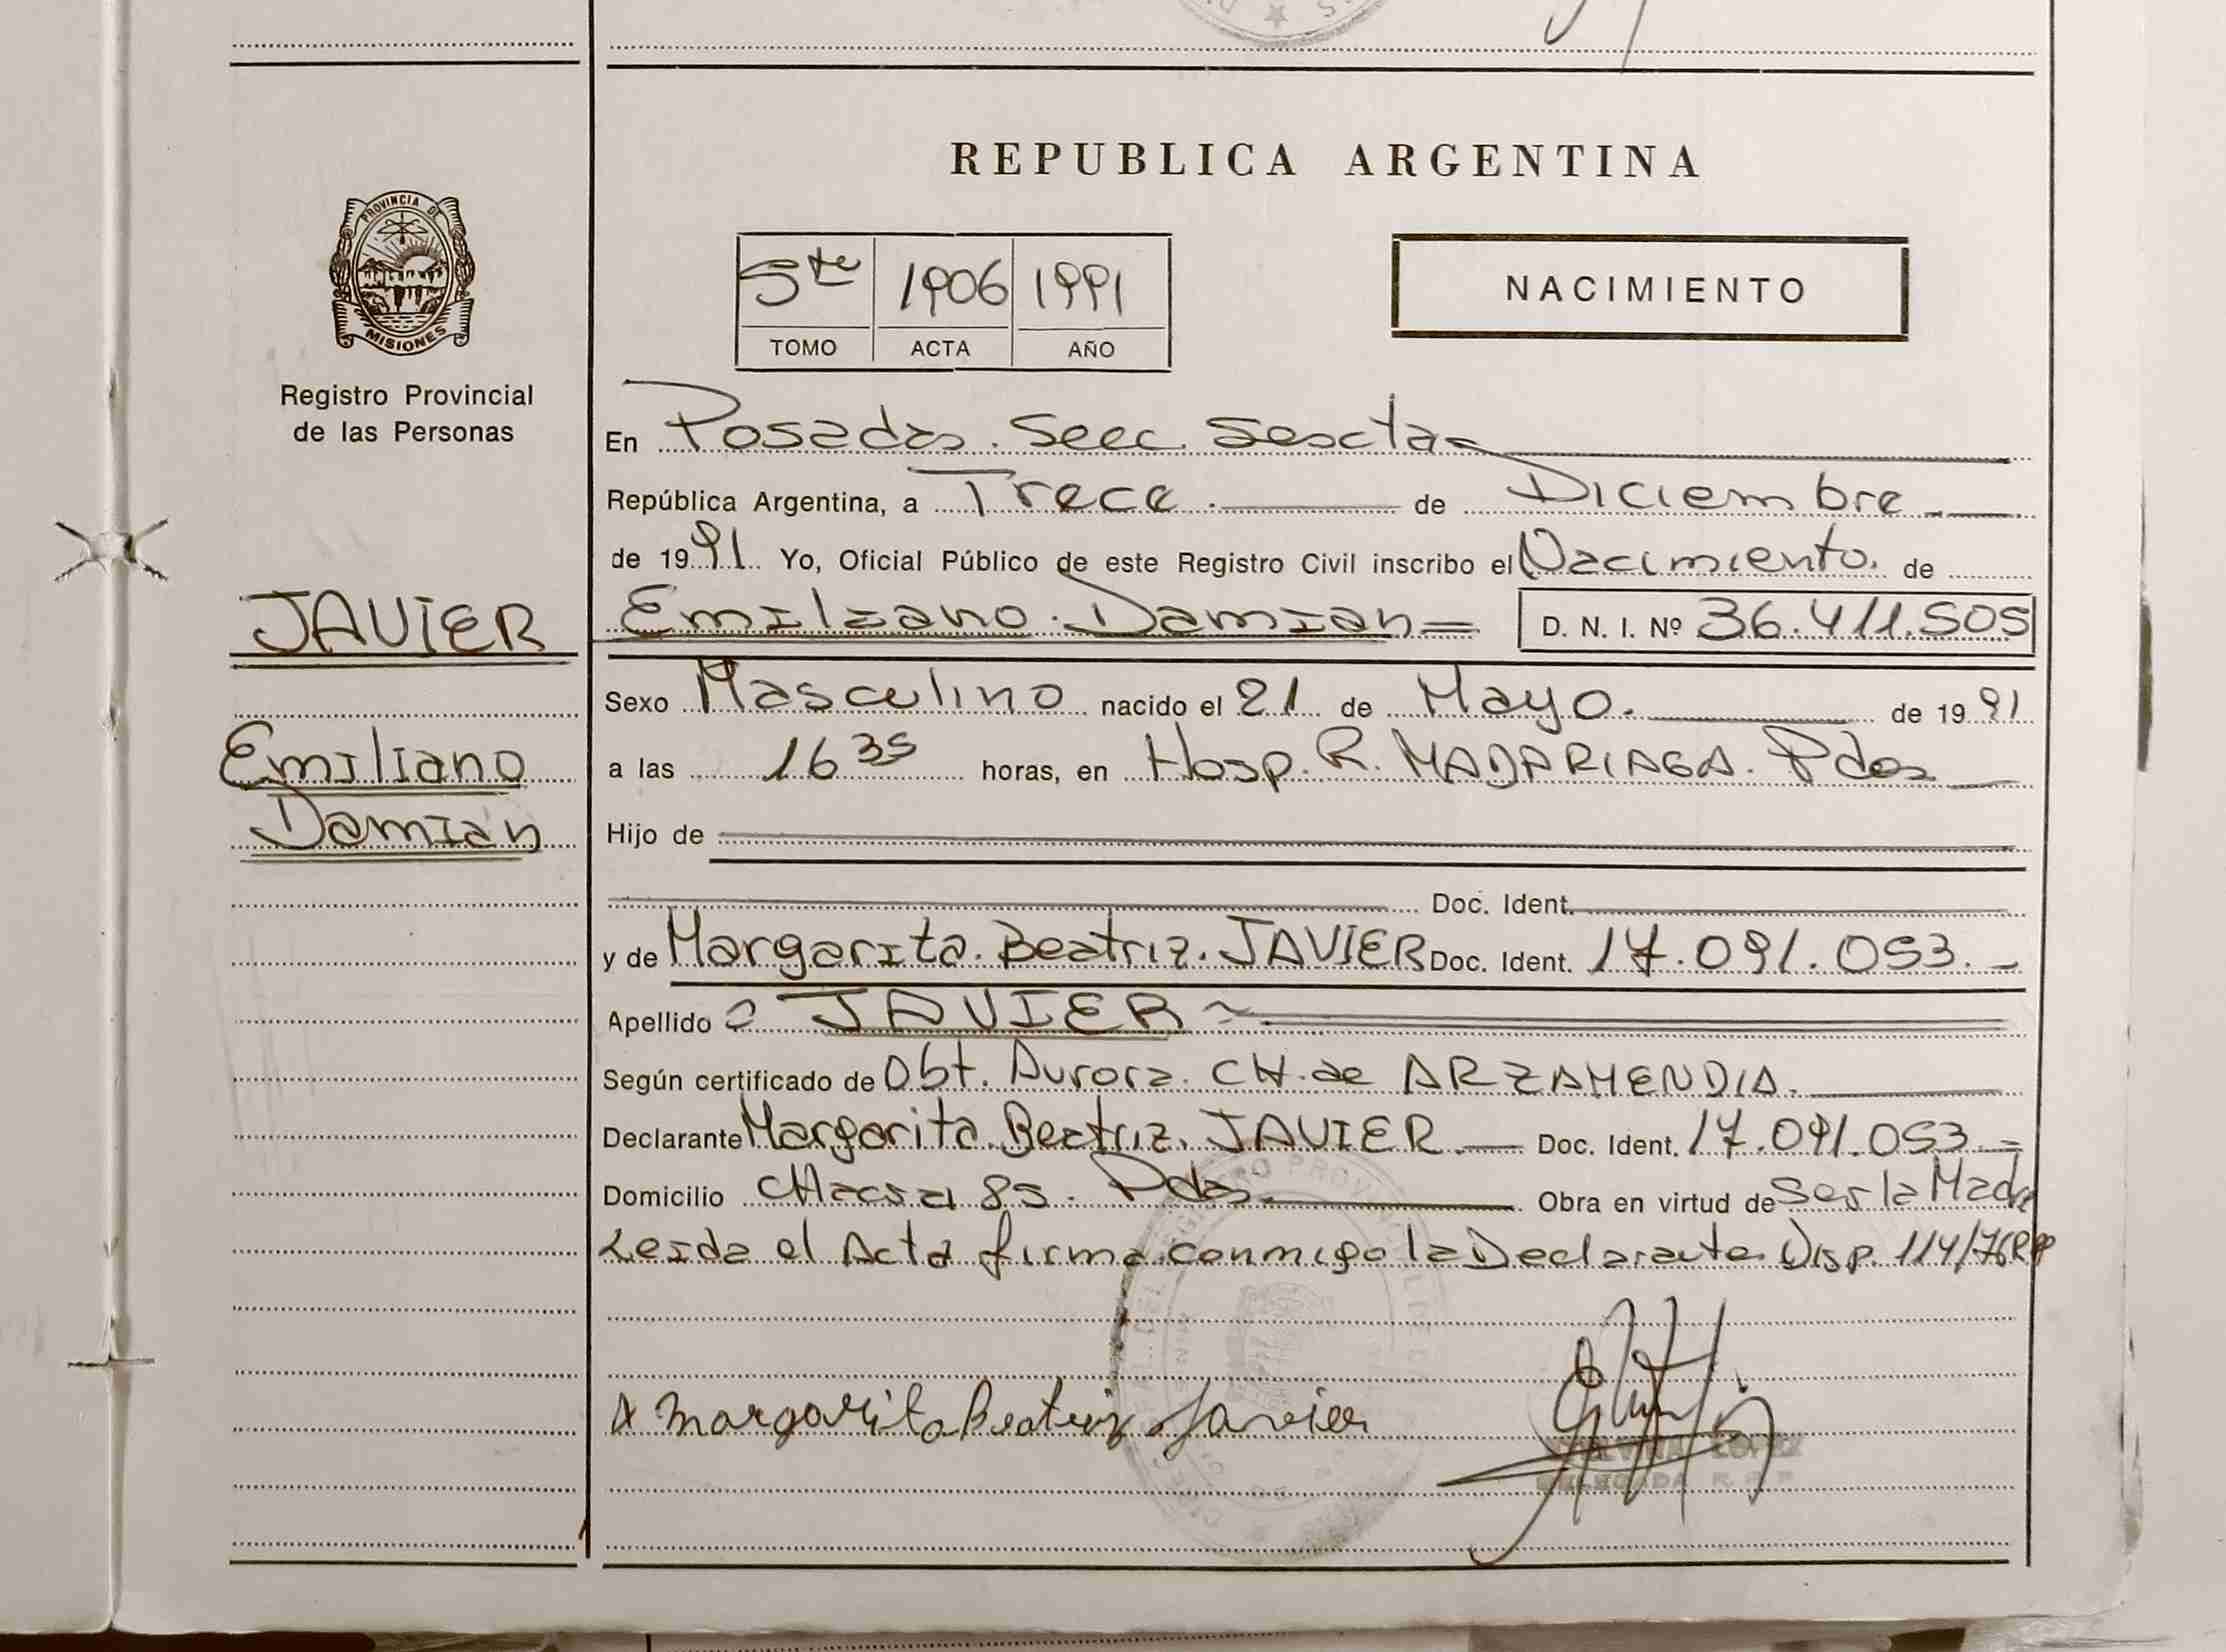 REPUBLICA ARGENTINA
PROVINCIA DE
MISIONES
Registro Provincial
de las Personas
5to 1906 1991
TOMO ACTA AÑO
NACIMIENTO
En Posadas. Secc. Sescta
República Argentina, a Trece. de Diciembre
de 1991. Yo, Oficial Público de este Registro Civil inscribo el Nacimiento. de
JAVIER
Emiliano. Damian = D. N. I. Nº 36.411.505
Sexo Masculino nacido el 21 de Mayo. de 1991
Emiliano
Damian
a las 16 35 horas, en Hosp. R. MADARIAGA. Pdas
Hijo de
Doc. Ident.
y de Margarita. Beatriz. JAVIER Doc. Ident. 17.091.053.-
Apellido JAVIER
Según certificado de Obt. Aurora. CH. de ARZAMENDIA.
Declarante Margarita. Beatriz. JAVIER.- Doc. Ident. 17.091.053.=
Domicilio CHacra 85. Pdas. Obra en virtud de Ser la Madre
Leida el Acta firma conmigo la Declarante. Disp. 114/76 RPP
Margarita Beatriz Javier
LOPEZ
DELEGADA R. P. P.